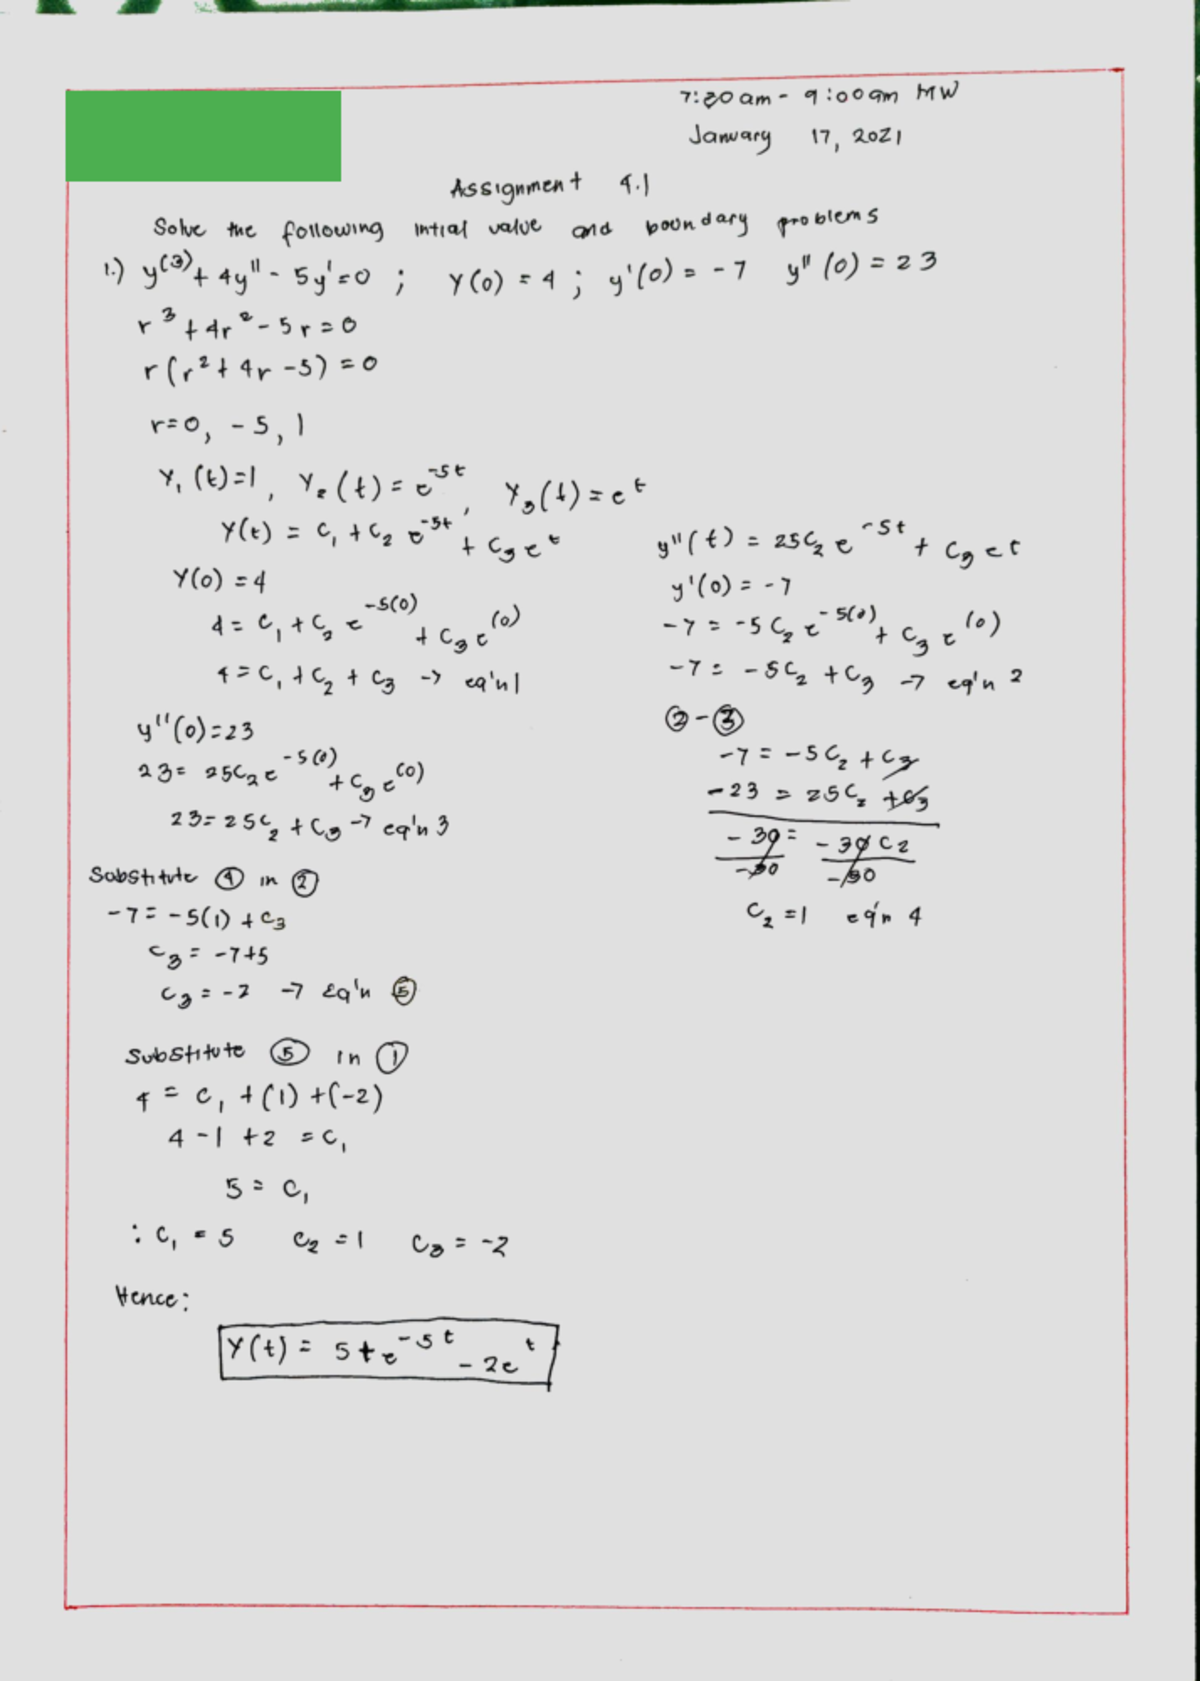 7:30 am - 9:00 am MW
January 17, 2021
Assignment 4.1
Solve the following intial value and boundary problems
1.) y⁽³⁾ + 4y'' - 5y' = 0 ; Y(0) = 4 ; y'(0) = -7 y''(0) = 23
r³ + 4r² - 5r = 0
r(r² + 4r - 5) = 0
r = 0, -5, 1
Y₁(t) = 1, Y₂(t) = e⁻⁵ᵗ, Y₃(t) = eᵗ
Y(t) = C₁ + C₂ e⁻⁵ᵗ + C₃ eᵗ
Y(0) = 4
4 = C₁ + C₂ e⁻⁵⁽⁰⁾ + C₃ e⁽⁰⁾
4 = C₁ + C₂ + C₃ → eq'n 1
y''(t) = 25C₂ e⁻⁵ᵗ + C₃ eᵗ
y'(0) = -7
-7 = -5C₂ e⁻⁵⁽⁰⁾ + C₃ e⁽⁰⁾
-7 = -5C₂ + C₃ → eq'n 2
y''(0) = 23
23 = 25C₂ e⁻⁵⁽⁰⁾ + C₃ e⁽⁰⁾
23 = 25C₂ + C₃ → eq'n 3
② - ③
-7 = -5C₂ + C₃
-23 = 25C₂ + C₃
-30 = -30C₂
-30 -30
C₂ = 1 eq'n 4
Substitute ④ in ②
-7 = -5(1) + C₃
C₃ = -7+5
C₃ = -2 → Eq'n ⑤
Substitute ⑤ in ①
4 = C₁ + (1) + (-2)
4 - 1 + 2 = C₁
5 = C₁
∴ C₁ = 5 C₂ = 1 C₃ = -2
Hence:
Y(t) = 5 + e⁻⁵ᵗ - 2eᵗ